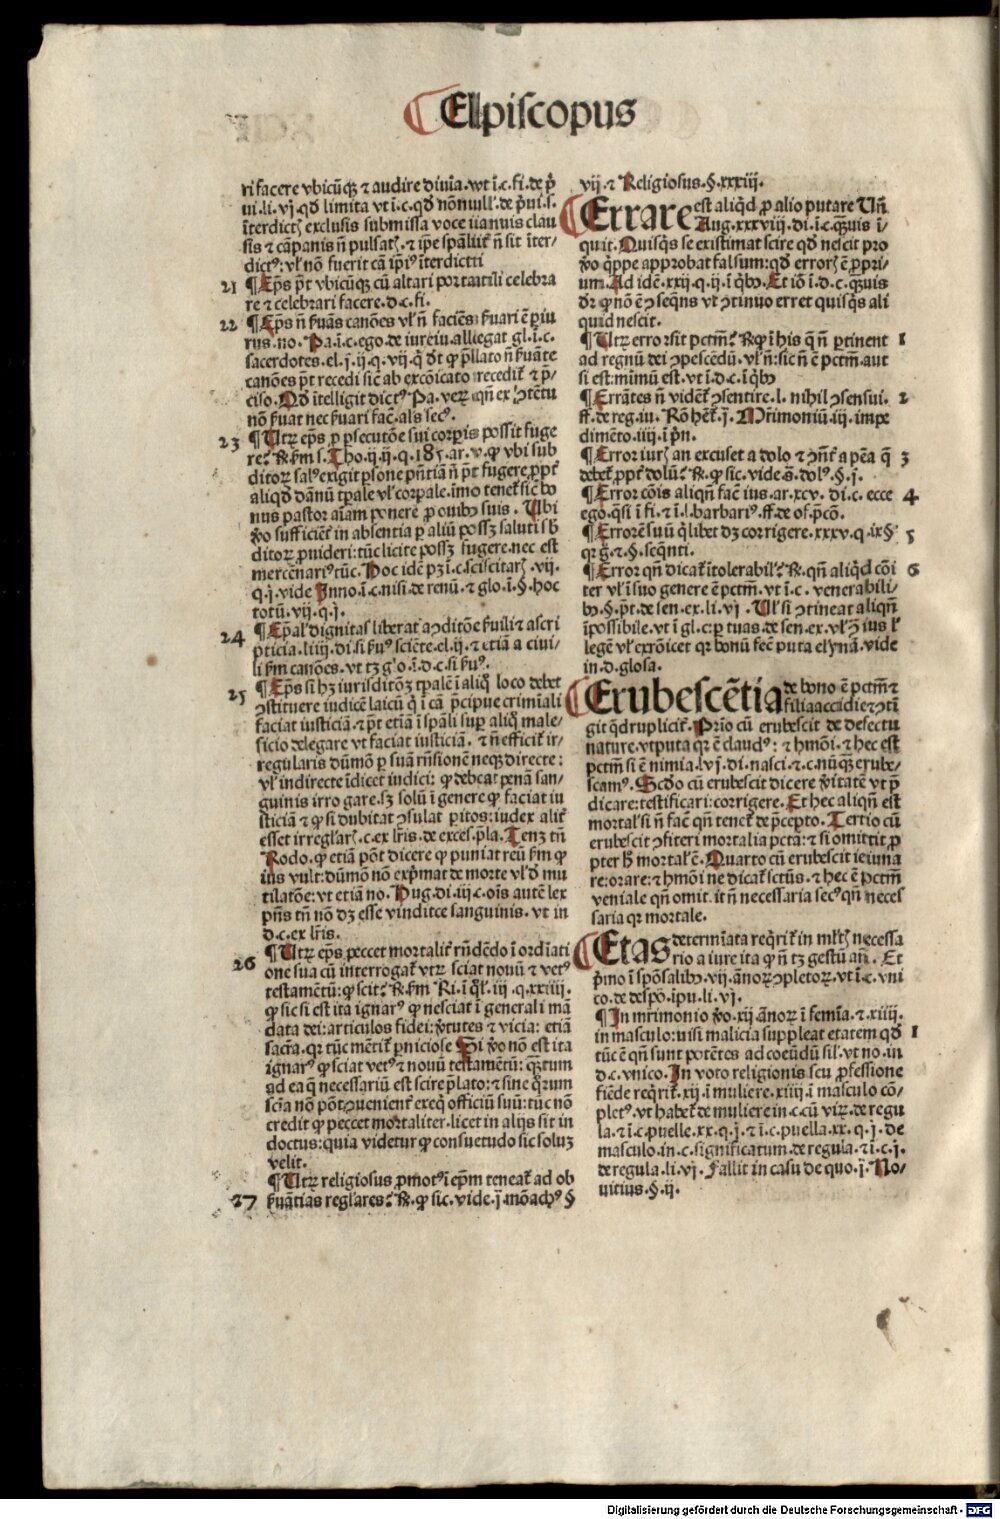 Episcopus
ri facere vbicūqꝫ ⁊ audire diuīa. vt ī.c.fi.de p̄
ui.li.vj. qđ limita vt ī.c. qđ nōnull'.de p̄ui.s.
īterdictꝭ exclusis submissa voce iianuis clau
sis ⁊ cāpanis n̄ pulsatꝭ. ⁊ ip̄e sp̄alit̄ n̄ sit īter-
dictꝰ: vl' nō fuerit cā ip̄iꝰ īterdicti
21 ¶ Ep̄s p̄t vbicūqꝫ cū altari portatili celebra
re ⁊ celebrari facere.d.c.fi.
22 ¶ Ep̄s n̄ ẜuās canōes vl' n̄ faciēs ẜuari ē ꝑiu
rus.no. Pa.ī.c.ego.de iureiu.allegat gl.ī.c.
sacerdotes.el.j.ij.q.vij.q̄ dt̄ ꝙ p̄llato n̄ ẜuāte
canōes p̄t recedi sic̄ ab excōicato recedit̄ ⁊ p̄-
ciso. Qđ ītelligit dictꝰ Pa. veꝝ qn̄ ex ꝯtētu
nō ẜuat nec ẜuari fac̄.als secꝰ.
23 ¶ Utꝝ ep̄s ꝓ ꝑsecutōe sui corꝑis possit fuge
re? ℞. ẜm s. Tho.ij.ij.q.185.ar.v. ꝙ vbi sub
ditoꝝ salꝰ exigit ꝑsone p̄ntiā n̄ p̄t fugere ꝓpt̄
aliqđ dānū tꝑale vl' corꝑale. imo tenet̄ sic̄ bo
nus pastor aīam ponere ꝓ ouibꝰ suis. Ubi
v̄o sufficiēt̄ in absentia ꝑ aliū possꝫ saluti sb̄
ditoꝝ ꝓuideri: tūc licite possꝫ fugere. nec est
mercēnariꝰ tūc. Hoc idē pꝫ ī.c.sciscitarꝭ.vij.
q.j.vide Inno.ī.c.nisi.de renū. ⁊ glo.ī.§.hoc
totū.vij.q.j.
24 ¶ Ep̄al' dignitas liberat a ꝯditōe ẜuili ⁊ ascri
pticia.liiij.di.si ẜuꝰ sciēte.el.ij. ⁊ etiā a ciui-
li ẜm canōes.vt tꝫ glo.ī.d.c.si ẜuꝰ.
25 ¶ Ep̄s si hꝫ iurisditōꝫ tꝑalē ī aliq̊ loco debet
ꝯstituere iudicē laicū q̇ ī cā p̄ncipue crimīali
faciat iusticiā. ⁊ p̄t etiā ī sp̄ali suꝑ aliq̊ male-
ficio delegare vt faciat iusticiā. ⁊ n̄ efficit̄ ir-
regularis dūmō ꝑ suā rn̄sionē neqꝫ directe:
vl' indirecte īdicet iudici: ꝙ debeat penā san-
guinis irrogare. sꝫ solū ī genere ꝙ faciat iu
sticiā ⁊ ꝙ si dubitat ꝯsulat ꝑitos: iudex alit̄
esset irreglarꝭ.c.ex lr̄is.de exces.p̄la. Tenꝫ tn̄
Rodo. ꝙ etiā pōt dicere ꝙ puniat reū ẜm ꝙ
ius vult: dūmō nō exp̄mat de morte vl' đ mu
tilatōe: vt etiā no. Hug.di.iij.c.oīs autē lex
p̄ns tn̄ nō dꝫ esse vinditce sanguinis. vt in
d.c.ex lr̄is.
26 ¶ Utꝝ ep̄s peccet mortalit̄ rn̄dēdo ī ordīati
one sua cū interrogat̄ vtꝝ sciat nouū ⁊ vetꝰ
testamētū: ꝙ scit? ℞. ẜm Ri.ī q̊l'.iij.q.xxiiij.
ꝙ sic si est ita ignarꝰ ꝙ nesciat ī generali mā
data dei: articulos fidei: v̄tutes ⁊ vicia: etiā
sacr̄a. qr tūc mētit̄ ꝑniciose. Si v̄o nō est ita
ignarꝰ ꝙ sciat vetꝰ ⁊ nouū testamētū: q̄ꝫtum
ad ea q̄ necessariū est scire p̄lato: ⁊ sine q̇rum
scīa nō pōt ꝯuenient̄ exeq̇ officiū suū: tūc nō
credit̄ ꝙ peccet mortaliter. licet in alijs sit in
doctus: quia videtur ꝙ consuetudo sic soluꝫ
velit.
27 ¶ Utꝝ religiosus ꝓmotꝰ ī ep̄m teneat̄ ad ob
ẜuātias reglares? ℞. ꝙ sic.vide.j.mōachꝰ §
vij. ⁊ Religiosus.§.xxxiij.
Errare est aliqđ ꝓ alio putare Un̄
Aug.xxxviij.di.ī.c.q̄ꝫuis ī-
quit. Quisq̇s se existimat scire qđ nescit pro
v̄o q̇ppe approbat falsum: qđ errorꝭ ē ꝓpri-
um. Ad idē.xxij.q.ij.ī q̇bꝰ. Et iō ī.d.c.q̄ꝫuis
dr̄ ꝙ nō ē ꝯseq̄ns vt ꝯtinuo erret quisq̇s ali
quid nescit.
¶ Utꝝ error sit pctm̄? ℞. ꝙ ī his q̄ n̄ ꝑtinent 1
ad regnū dei ꝯpescēdū. vl' n̄: sic n̄ ē pctm̄. aut
si est: mīmū est. vt ī.d.c.ī q̇bꝰ
¶ Errātes n̄ vident̄ ꝯsentire.l.nihil ꝯsensui. 2
ff.de reg.iu. Rō het̄.j. Mr̄imoniū.iij.impe
dimēto.iiij.ī pn̄.
¶ Error iurꝭ an excuset a dolo ⁊ ꝯn̄t̄ a pēa q̄ 3
debet̄ ꝓpt̄ dolū? ℞. ꝙ sic.vide.s.dolꝰ.§.j.
¶ Error cōis aliqn̄ fac̄ ius.ar.xcv.di.c.ecce 4
ego. q̄si ī fi. ⁊ ī.l.barbariꝰ.ff.de of.p̄cō.
¶ Errorē suū q̇libet dꝫ corrigere.xxxv.q.ix§ 5
qr g̊. ⁊ .§.seq̄nti.
¶ Error qn̄ dicat̄ ītolerabil'? ℞. qn̄ aliqđ cōi 6
ter vl' ī suo genere ē pctm̄. vt ī.c.venerabili-
bꝰ.§.p̄t.de sen.ex.li.vj. Ul' si ꝯtineat aliqn̄
īpossibile. vt ī gl.c.ꝑ tuas.de sen.ex. vl' ꝯ ius l'
legē vl' exrōicet qr bonū fec̄ puta elynā. vide
in.d.glosa.
Erubescētia de bono ē pctm̄ ⁊
filia accidie ⁊ ꝯtī
git q̄druplicit̄. Prīo cū erubescit de defectu
nature. vtputa qr ē claudꝰ: ⁊ hmōi. ⁊ hec est
pctm̄ si ē nimia.lvj.di.nasci. ⁊ c.nūq̄ꝫ erube-
scamꝰ. Scdo cū erubescit dicere v̄itatē vt p̄
dicare: testificari: corrigere. Et hec aliqn̄ est
mortal' si n̄ fac̄ qn̄ tenet̄ de p̄cepto. Tertio cū
erubescit ꝯfiteri mortalia pctā: ⁊ si omittit ꝓ
pter h̄ mortal' ē. Quarto cū erubescit ieiuna
re: orare: ⁊ hmōi ne dicat̄ sctūs. ⁊ hec ē pctm̄
veniale qn̄ omit.it n̄ necessaria secꝰ qn̄ neces
saria qr mortale.
Etas determīata req̇rit̄ in mltꝭ necessa
rio a iure ita ꝙ n̄ tꝫ gestū añ. Et
p̄mo ī spōsalibꝰ.vij.ānoꝝ ꝯpletoꝝ. vt ī.c.vni
co.de despō.īpu.li.vj.
¶ In mr̄imonio v̄o.xij ānoꝝ ī femīa. ⁊ xiiij.
in masculo: nisi malicia suppleat etatem qđ 1
tūc ē qn̄ sunt potētes ad coeūdū sil'. vt no.in
d.c.vnico. In voto religionis seu ꝓfessione
fiēde req̇rit̄.xij.ī muliere.xiiij.ī masculo cō-
pletꝰ. vt habet̄ de muliere in.c.cū viꝝ.de regu
la. ⁊ ī.c.puelle.xx.q.j. ⁊ ī.c.puella.xx.q.j. de
masculo.in.c.significatum.de regula. ⁊ ī.c.j.
de regula.li.vj. Fallit in casu de quo.j. No-
uitius.§.ij.
Digitalisierung gefördert durch die Deutsche Forschungsgemeinschaft - DFG